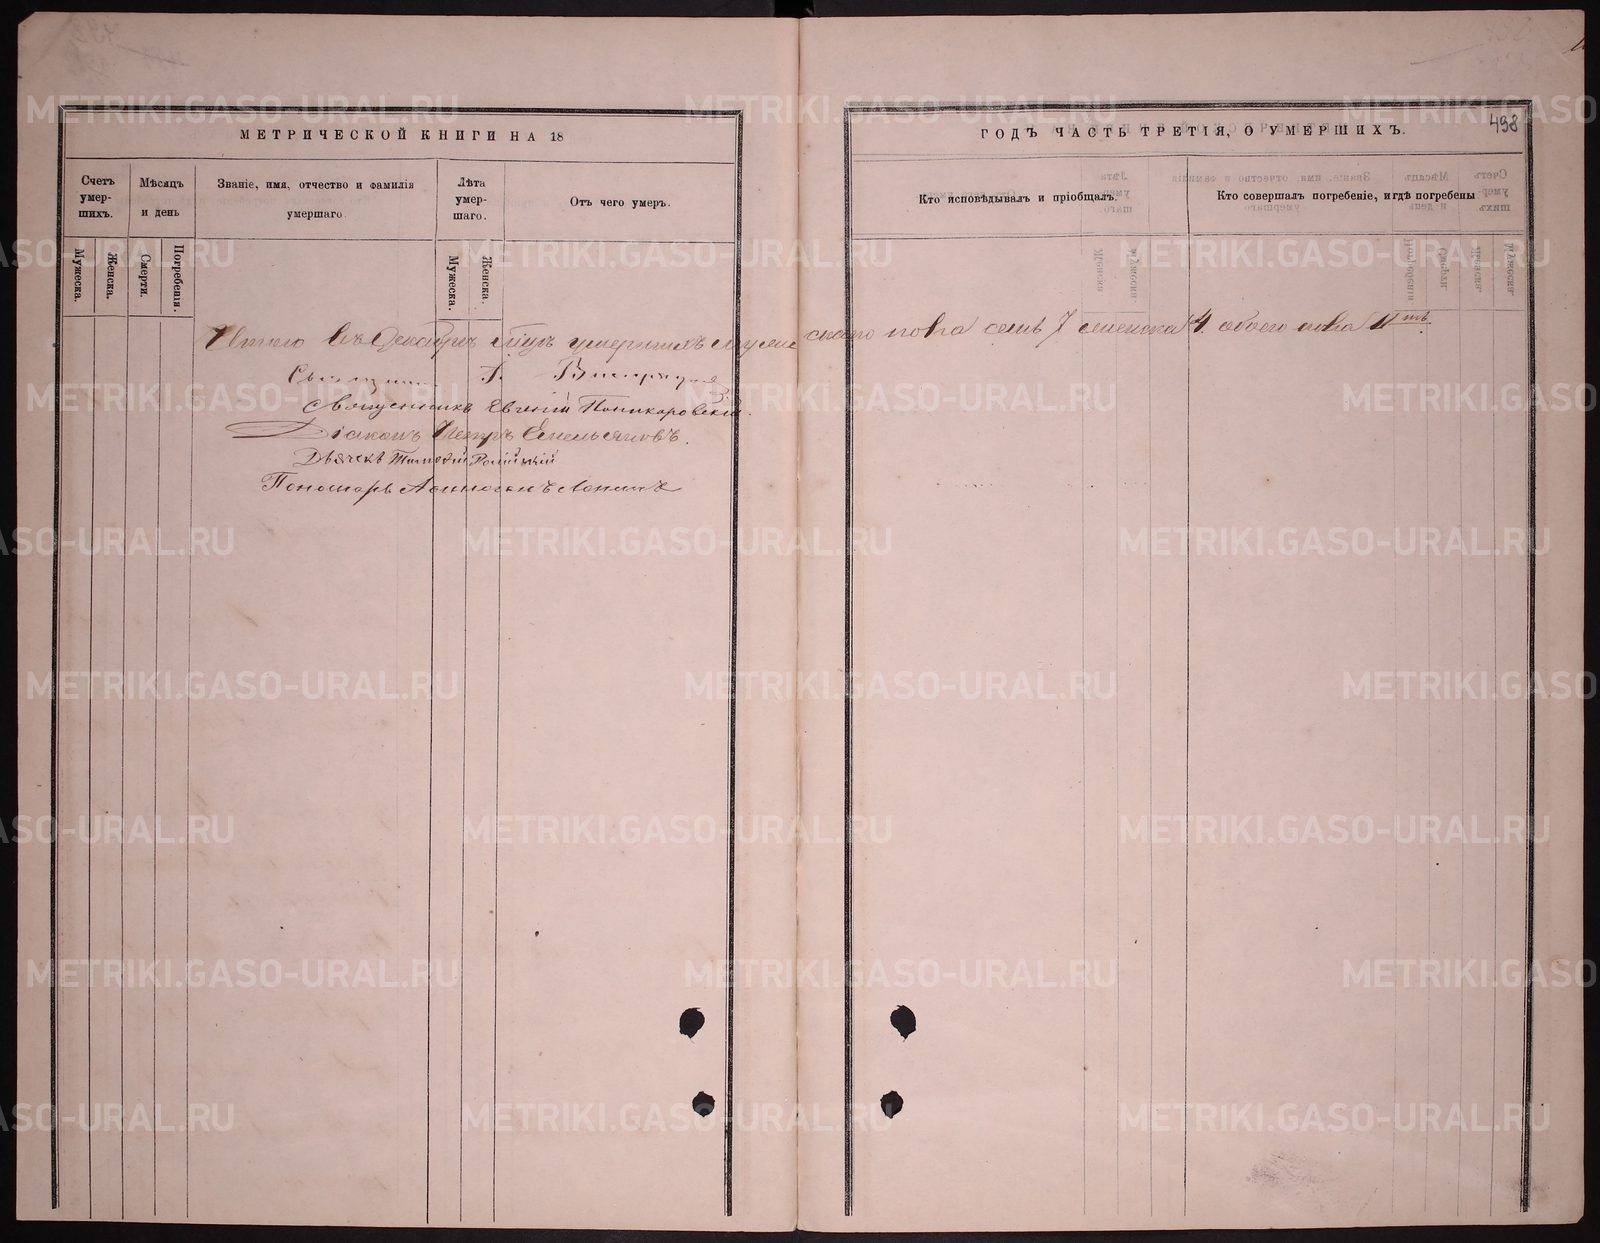 МЕТРИЧЕСКОЙ КНИГИ НА 18
ГОДЪ ЧАСТЬ ТРЕТІЯ, О УМЕРШИХЪ.
498
Счетъ умер-шихъ.
Мѣсяцъ и день
Званіе, имя, отчество и фамилія умершаго.
Лѣта умер-шаго.
Отъ чего умеръ.
Кто исповѣдывалъ и пріобщалъ.
Кто совершалъ погребеніе, и гдѣ погребены
Мужеска.
Женска.
Смерти.
Погребенія.
Мужеска.
Женска.
Итого въ Декабрѣ умершихъ мужескаго пола семь 7 женска 4 обоего пола 11ть
Священникъ Евгеній Поникаровскій.
Діаконъ Петръ Емельяновъ.
Дьячекъ
Пономарь
METRIKI.GASO-URAL.RU